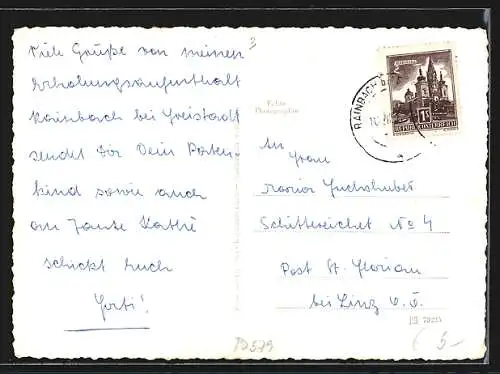 Viele Grüße von meinen
Erholungsaufenthalt
Rainbach bei Freistadt
sendet Dir Dein Paten-
kind sowie auch
an Tante Kathi
schickt Euch
3
Echte
Photographie
RAINBACH b.
10.
REPUBLIK ÖSTERREICH
1S
An Frau
Maria Fuchshuber
No 4
Post St. Florian
bei Linz O.Ö.
79225
19579
5-